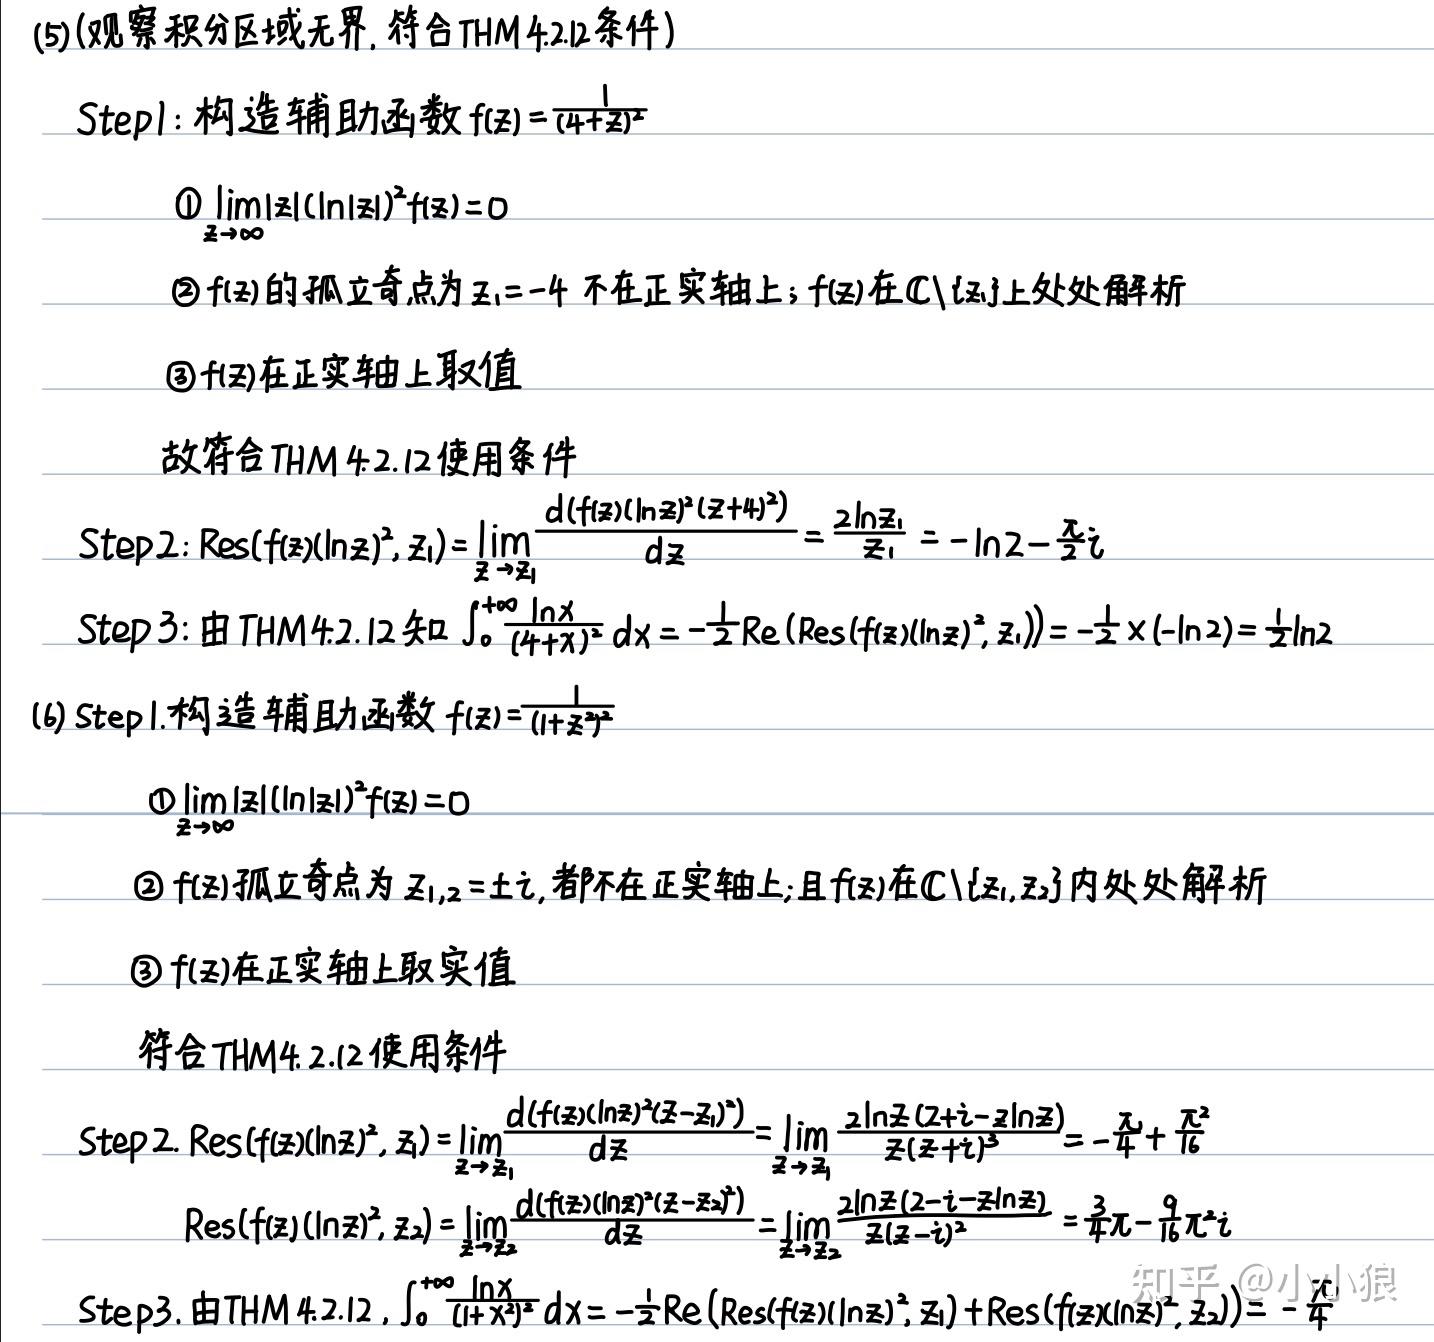 (5)(观察积分区域无界, 符合THM 4.2.12条件)
Step1: 构造辅助函数 f(z) = 1/(4+z)²
① lim_{z→∞} |z|(ln|z|)² f(z) = 0
② f(z) 的孤立奇点为 z₁ = -4 不在正实轴上; f(z) 在 ℂ\{z₁}上处处解析
③ f(z)在正实轴上取值
故符合THM 4.2.12使用条件
Step2: Res(f(z)(lnz)², z₁) = lim_{z→z₁} d(f(z)(lnz)²(z+4)²)/dz = 2lnz₁/z₁ = -ln2 - π/2 i
Step3: 由THM4.2.12知 ∫₀^{+∞} lnx/(4+x)² dx = -1/2 Re(Res(f(z)(lnz)², z₁)) = -1/2 × (-ln2) = 1/2 ln2
(6) Step1.构造辅助函数 f(z) = 1/(1+z²)²
① lim_{z→∞} |z|(ln|z|)² f(z) = 0
② f(z)孤立奇点为 z₁,₂ = ±i, 都不在正实轴上; 且f(z)在ℂ\{z₁, z₂}内处处解析
③ f(z)在正实轴上取实值
符合THM4.2.12使用条件
Step2. Res(f(z)(lnz)², z₁) = lim_{z→z₁} d(f(z)(lnz)²(z-z₁)²)/dz = lim_{z→z₁} 2lnz(z+i-zlnz)/z(z+i)³ = -π/4 + π²/16
Res(f(z)(lnz)², z₂) = lim_{z→z₂} d(f(z)(lnz)²(z-z₂)²)/dz = lim_{z→z₂} 2lnz(z-i-zlnz)/z(z-i)² = 3/4 π - 9/16 π² i
Step3. 由THM 4.2.12, ∫₀^{+∞} lnx/(1+x²)² dx = -1/2 Re(Res(f(z)(lnz)², z₁) + Res(f(z)(lnz)², z₂)) = -π/4
知乎 @小小狼